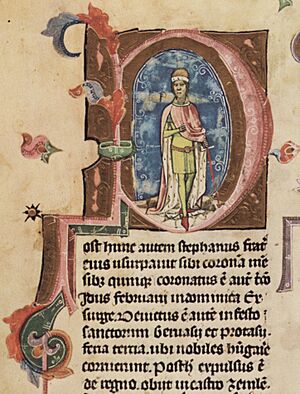 Post hunc autem stephanus frat̄
eius usurpavit sibi coronā mē
sibꝫ quinqꝫ coronatus ē aut̄
Idus februarii in dominica Ex
surge. Devictus ē aut̄ in festo
sanctorum Gervasy et protasy
feria tertia. ubi nobiles hūgarie
corruerunt. Posth̄ expulsus ē
de regno. obiit in castro